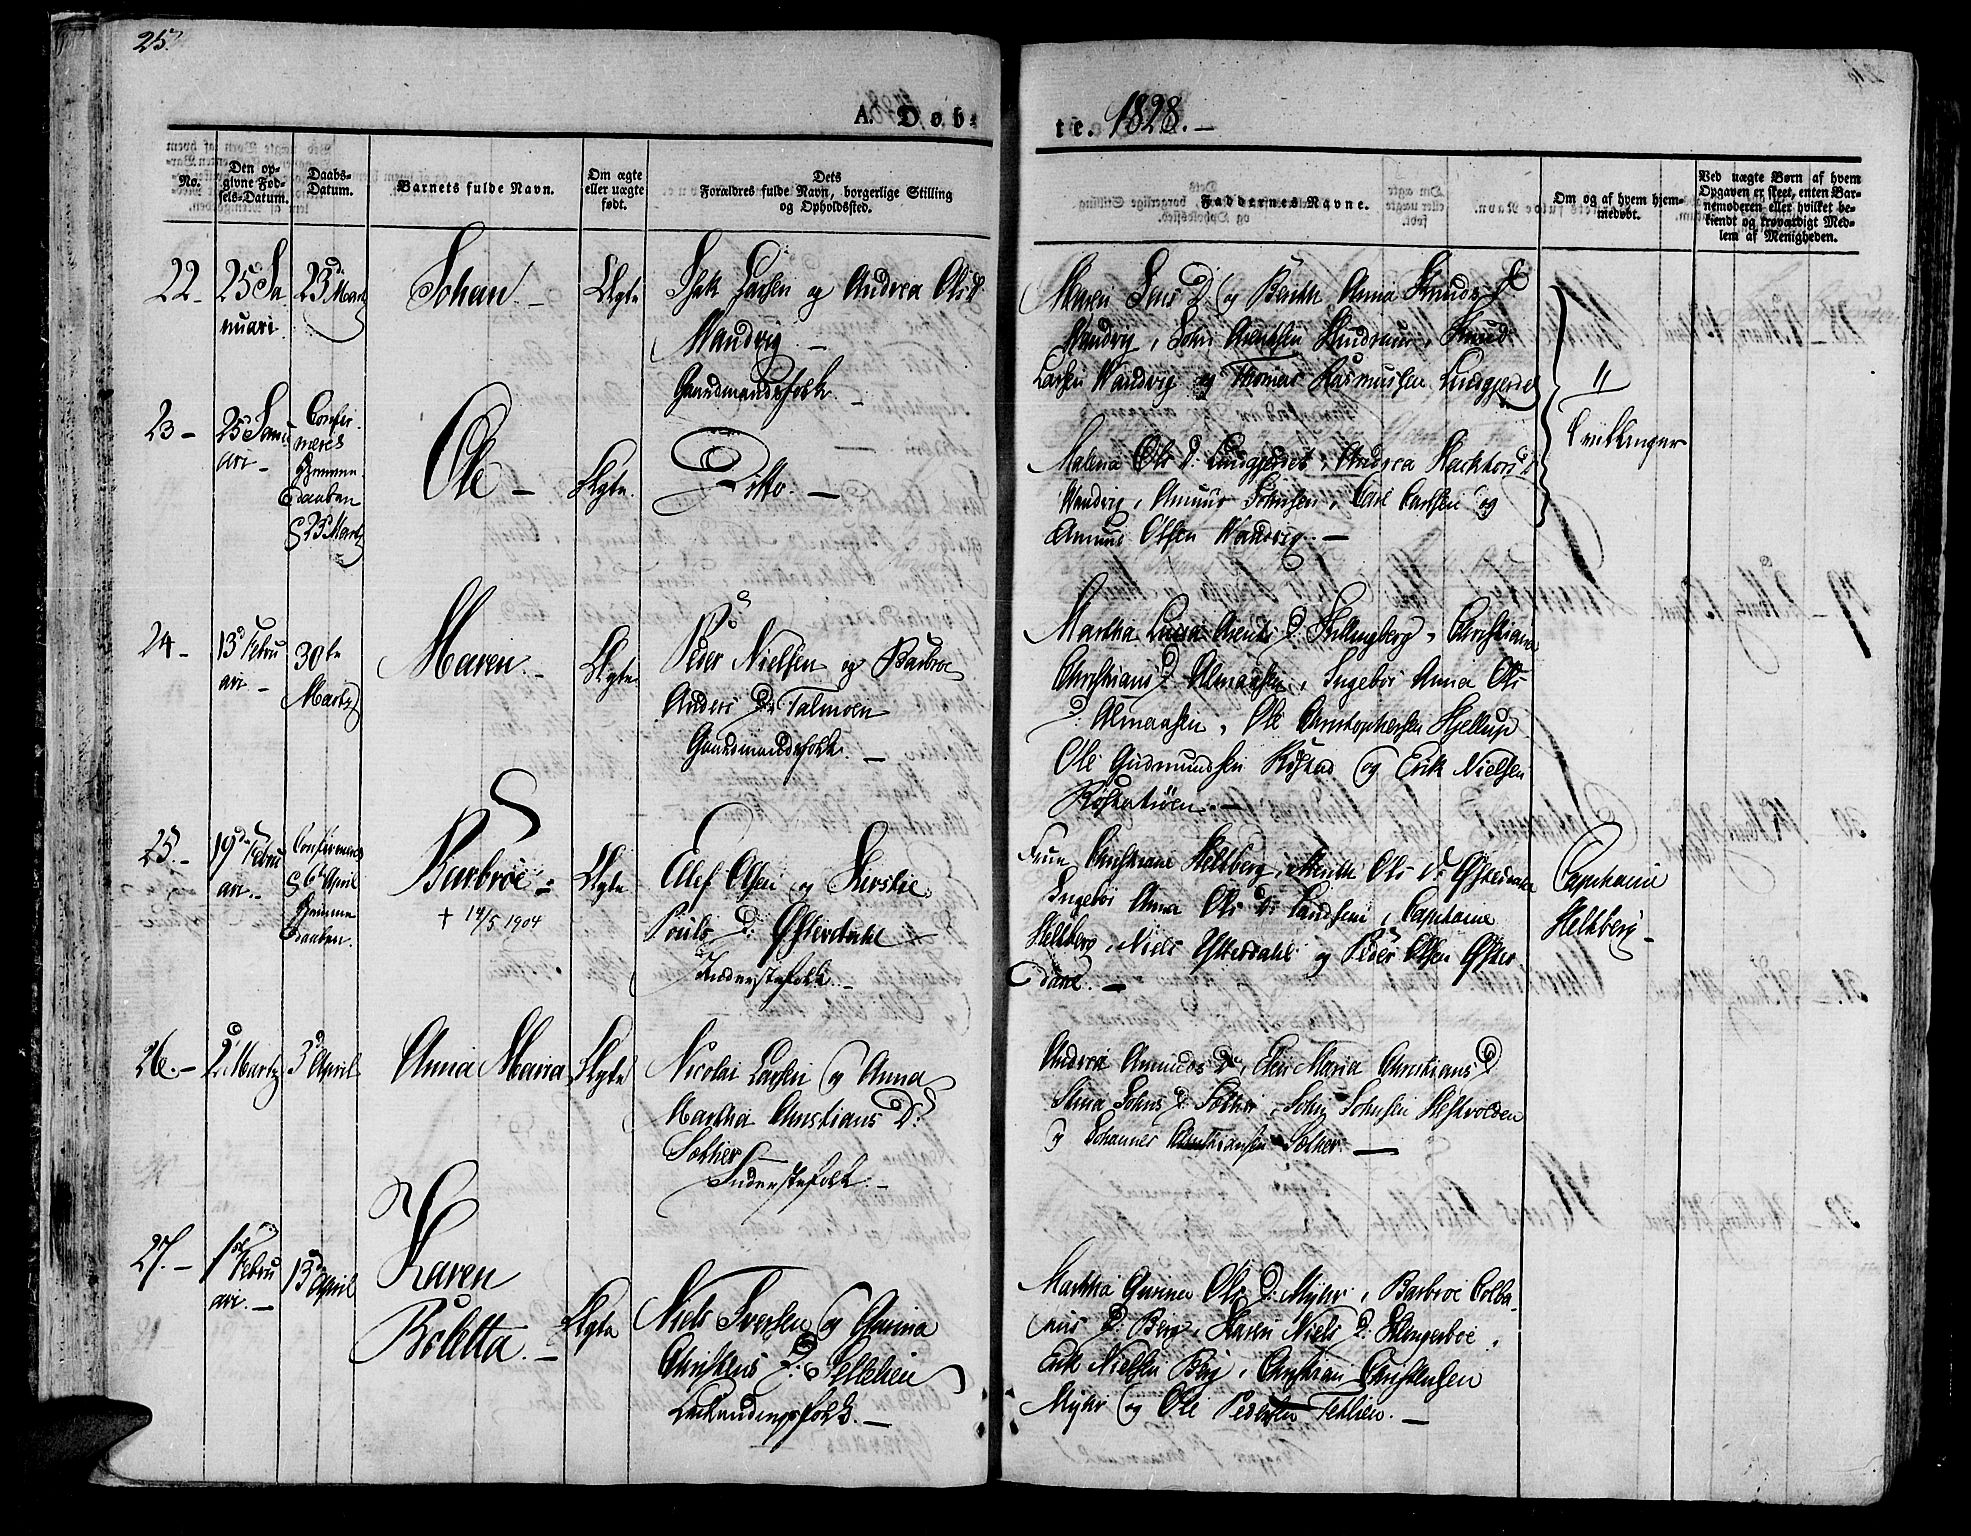 25.
A. Døb-
te. 1828. —
No.
Den op-
givne Fød-
sels-Datum.
Daabs-
Datum.
Barnets fulde Navn.
Om ægte
eller uægte
født.
Dets
Forældres fulde Navn, borgerlige Stilling
og Opholdssted.
Faddernes Navne.
Om og af hvem hjem-
medøbt.
Ved uægte Børn af hvem
Opgaven er skeet, enten Bar-
nemoderen eller hvilket be-
kiendt og troværdigt Med-
lem af Menigheden.
22 -
25 Ja
nuari
23d Martz
Johan. -
Ægte
Isak Larsen og Andrea Ols D.
Wandvig. -
Gaardmandsfolk -
Maren Lars D. og Berith Anna Knuds D.
Wandvig, John Arentsen, Knud
Larsen Wandvig og Thomas Rasmussen Lundgjerdet
23 -
25 Janu
ari -
Confir-
meres
Hjemme
Daaben
23 Martz
Ole -
Ægte.
Ditto. -
Malena Ols D. Lundgjerdet, Andrea
Wandvig, Amund Johnsen, Carl Larsen og
Amund Olsen Wandvig. -
"
Tvillinger
24 -
13d Febru
ari -
30te
Martz
Maren. -
Ægte
Peder Nielsen og Barbroe
Anders D. Talmoen
Gaardmandsfolk. -
Martha Lucia Arents D. Hellingberg, Christiana
Christians D. Almaasen, Ingebor Anna Ols
D. Almaasen, Ole Christophersen Hjellup
Ole Gudmundsen Røstad og Erik Nielsen
25. -
19d Febru
ari. -
Confirmeres
6te April
Hjemme
Daaben.
Barbroe -
+ 14/5 1904
Ægte
Ellef Olsen og Kirstie
Pouls D. Østerdahl
Inderstefolk. -
Frue Christiane Heltberg, Merith Ols D. Østerdahl
Ingebor Anna Ols D. Sandhem, Capitaine
Heltberg, Niels Østerdahl og Peder Olsen Øster
dahl. -
Capitaine
Heltberg -
26. -
2d Martz
3d April
Anna Maria
Ægte
Nicolai Larsen og Anna
Martha Christians D.
Søther
Inderstefolk. -
Andrea Amunds D., Elen Maria Christians D.
Anna Johns D. Søther, John Johnsen Hestvolden
og Johannes Christiansen Søther. -
27. -
1ste Febru
ari. -
13d April
Karen
Boletta. -
Ægte
Niels Iversen og Gurina
Christens D. Tetlien
Martha Gurina Ols D. Myhr, Barbroe Colba-
nus D. Berg, Karen Niels D.
Erik Nielsen Berg, Christian Christensen
Myhr og Ole Pedersen Tetlien. -